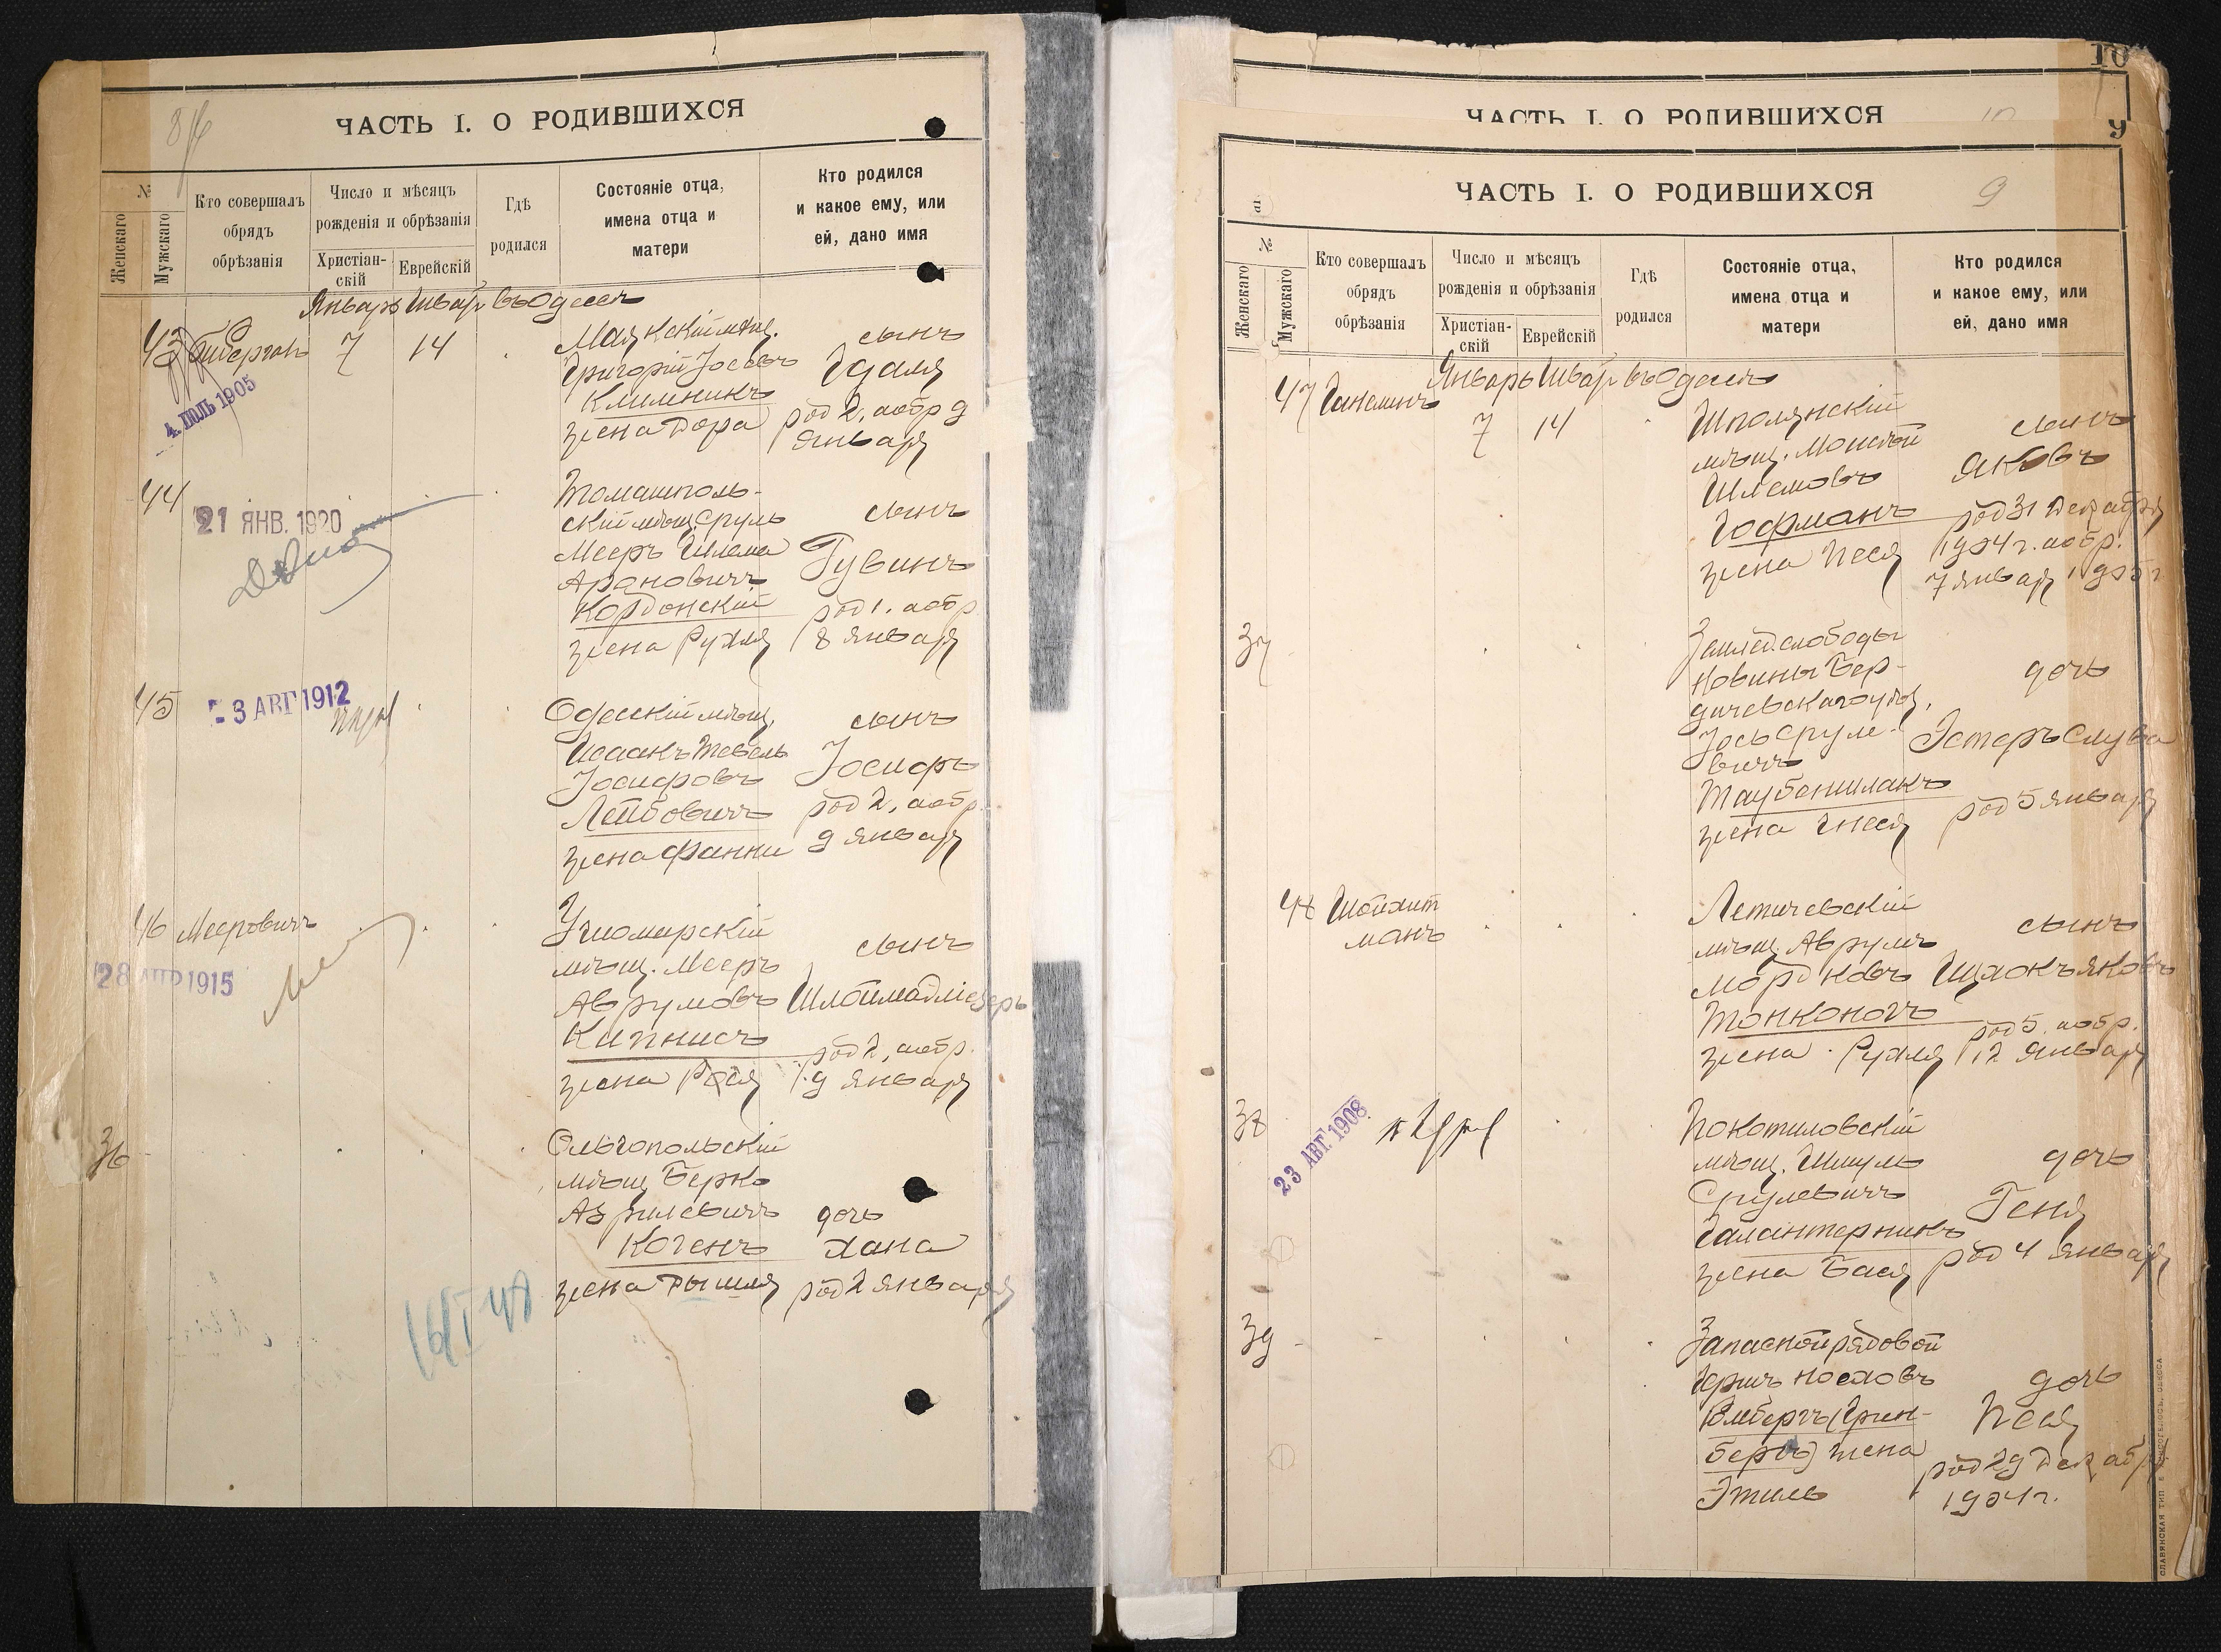 8
ЧАСТЬ I. О РОДИВШИХСЯ
№
Женскаго
Мужскаго
Кто совершалъ
обрядъ
обрѣзанія
Число и мѣсяцъ
рожденія и обрѣзанія
Христіан-
скій
Еврейскій
Гдѣ
родился
Состояніе отца,
имена отца и
матери
Кто родился
и какое ему, или
ей, дано имя
Январь Шват въ Одессѣ
43
7
14
Маякскій мѣщ.
Григорій Іосевъ
Климникъ
жена Дора
сынъ
Гдаля
род 2, аобр 9
Января
4. ІЮЛЬ 1905
44
21 ЯНВ. 1920
Томашполь-
скій мѣщ. Сруль
Мееръ Шлема
Ароновичъ
Кордонскій
жена Рухля
сынъ
Рувинъ
род 1. аобр
8 Января
45
3 АВГ 1912
Одесскій мѣщ.
Исаакъ Тевель
Іосифовъ
Лейбовичъ
жена Фанни
сынъ
Іосифъ
род 2, аобр.
9 Января
46
Мееровичъ
28 АПР 1915
Ушомирскій
мѣщ. Мееръ
Аврумовъ
Кипнисъ
жена Рося
сынъ
род 2, аобр.
9 Января
36
Ольгопольскій
мѣщ Берко
Азрилевичъ
Когенъ
жена Рышля
дочь
Хана
род 2 Января
10
ЧАСТЬ I. О РОДИВШИХСЯ
9
ЧАСТЬ I. О РОДИВШИХСЯ
9
№
Женскаго
Мужскаго
Кто совершалъ
обрядъ
обрѣзанія
Число и мѣсяцъ
рожденія и обрѣзанія
Христіан-
скій
Еврейскій
Гдѣ
родился
Состояніе отца,
имена отца и
матери
Кто родился
и какое ему, или
ей, дано имя
Январь Шват въ Одессѣ
47
7
14
Шполянскій
мѣщ. Моисей
Шлемовъ
Гофманъ
жена Песя
сынъ
Яковъ
род 31 Декабря
1904 г. аобр.
7 Января 1905 г
37
слободы
Новины Бер-
дичевскаго уѣз.
Іось Срулe-
вичъ
Таубеншлакъ
жена Гнеся
дочь
Эстеръ Слува
род 5 Января
48
Шойхит
манъ
Летичевскій
мѣщ. Аврумъ
Мордковъ
Тонконогъ
жена Рухля
сынъ
Ицхокъ Яковъ
род 5. аобр.
12 Января
38
23 АВГ. 1908
Покотиловскій
мѣщ. Шмуль
Срулевичъ
Галантерникъ
жена Бася
дочь
Геня
род 4 Января
39
Запасной рядовой
Гершъ Носховъ
Юмбергъ (Грин-
бергъ) жена
Этиль
дочь
Песя
род 29 Декабря
1904 г.